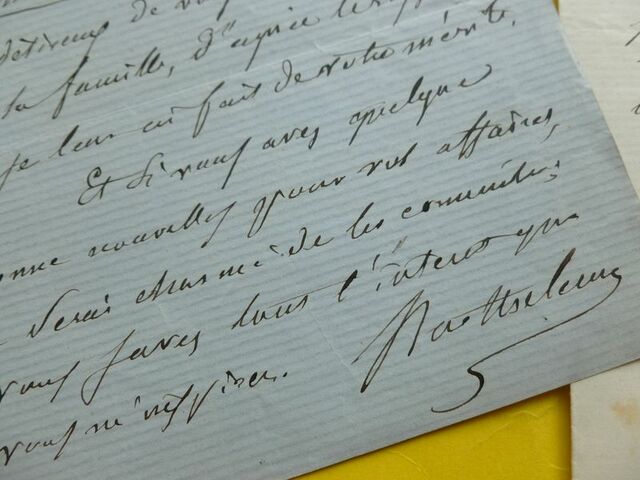 désireux de
la famille, d'après le
je leur ai fait de votre mérite.
Et si vous avez quelque
nouvelles pour vos affaires,
serai charmé de les connaître;
vous savez tout l'intérêt que
vous m'inspirez.